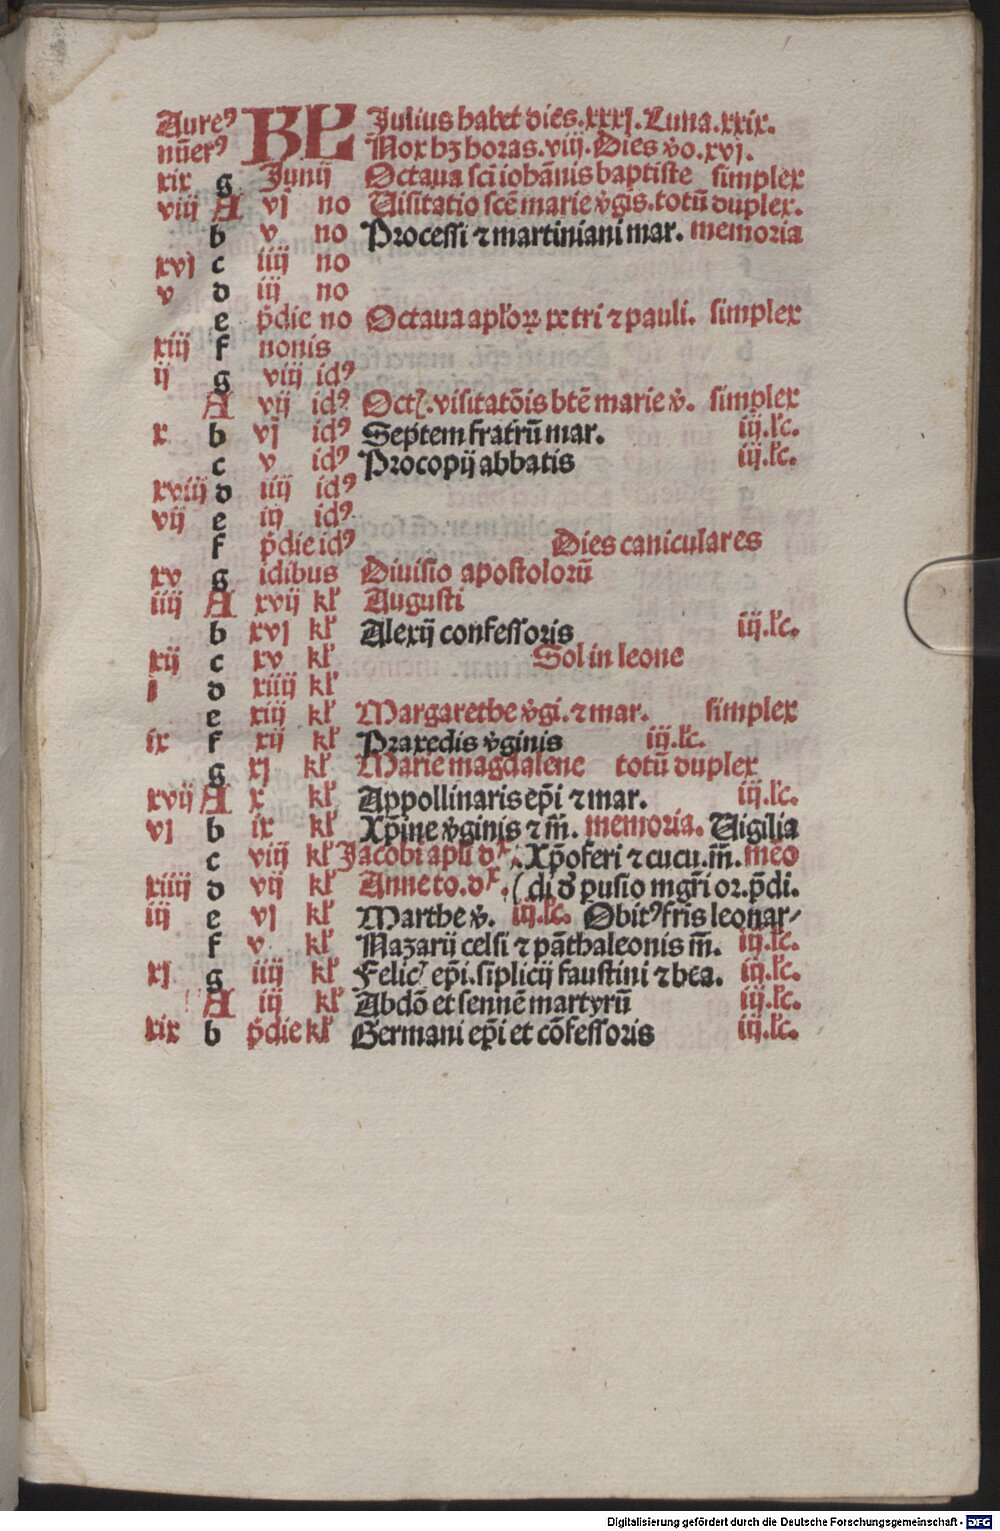 Aureꝰ KL Julius habet dies.xxxj.Luna.xxix.
nūerꝰ Nox hꝫ horas.viij.Dies ṽo.xvj.
xix g Junij Octaua scī iohānis baptiste simplex
viij A vj no Uisitatio scē marie ṽgis.totū duplex.
b v no Processi ⁊ martiniani mar. memoria
xvj c iiij no
v d iij no
e p̄die no Octaua apl'oꝝ petri ⁊ pauli. simplex
xiij f nonis
ij g viij idꝰ
A vij idꝰ Oct᷒.visitatōis btē marie ṽ. simplex
x b vj idꝰ Septem fratrū mar. iij.l'c.
c v idꝰ Procopij abbatis iij.l'c.
xviij d iiij idꝰ
vij e iij idꝰ
f p̄die idꝰ Dies caniculares
xv g idibus Diuisio apostolorū
iiij A xvij kl' Augusti
b xvj kl' Alexij confessoris iij.l'c.
xij c xv kl' Sol in leone
j d xiiij kl'
e xiij kl' Margarethe ṽgi.⁊ mar. simplex
ix f xij kl' Praxedis ṽginis iij.l'c.
g xj kl' Marie magdalene totū duplex
xvij A x kl' Appollinaris ep̄i ⁊ mar. iij.l'c.
vj b ix kl' Xp̄ine ṽginis ⁊ m̄. memoria. Uigilia
c viij kl' Jacobi apl'i dˣ. Xp̄oferi ⁊ cucu.m̄.meō
xiiij d vij kl' Anne to.dˣ. (di d' pusio mgr̄i or.p̄di.
iij e vj kl' Marthe ṽ. iij.l'c. Obitꝰ fr̄is leonar⸗
f v kl' Nazarij celsi ⁊ pāthaleonis m̄. iij.l'c.
xj g iiij kl' Felic᷒ ep̄i.sīplicij faustini ⁊ bea. iij.l'c.
A iij kl' Abdō et sennē martyrū iij.l'c.
xix b p̄die kl' Germani ep̄i et cōfessoris iij.l'c.
Digitalisierung gefördert durch die Deutsche Forschungsgemeinschaft - DFG